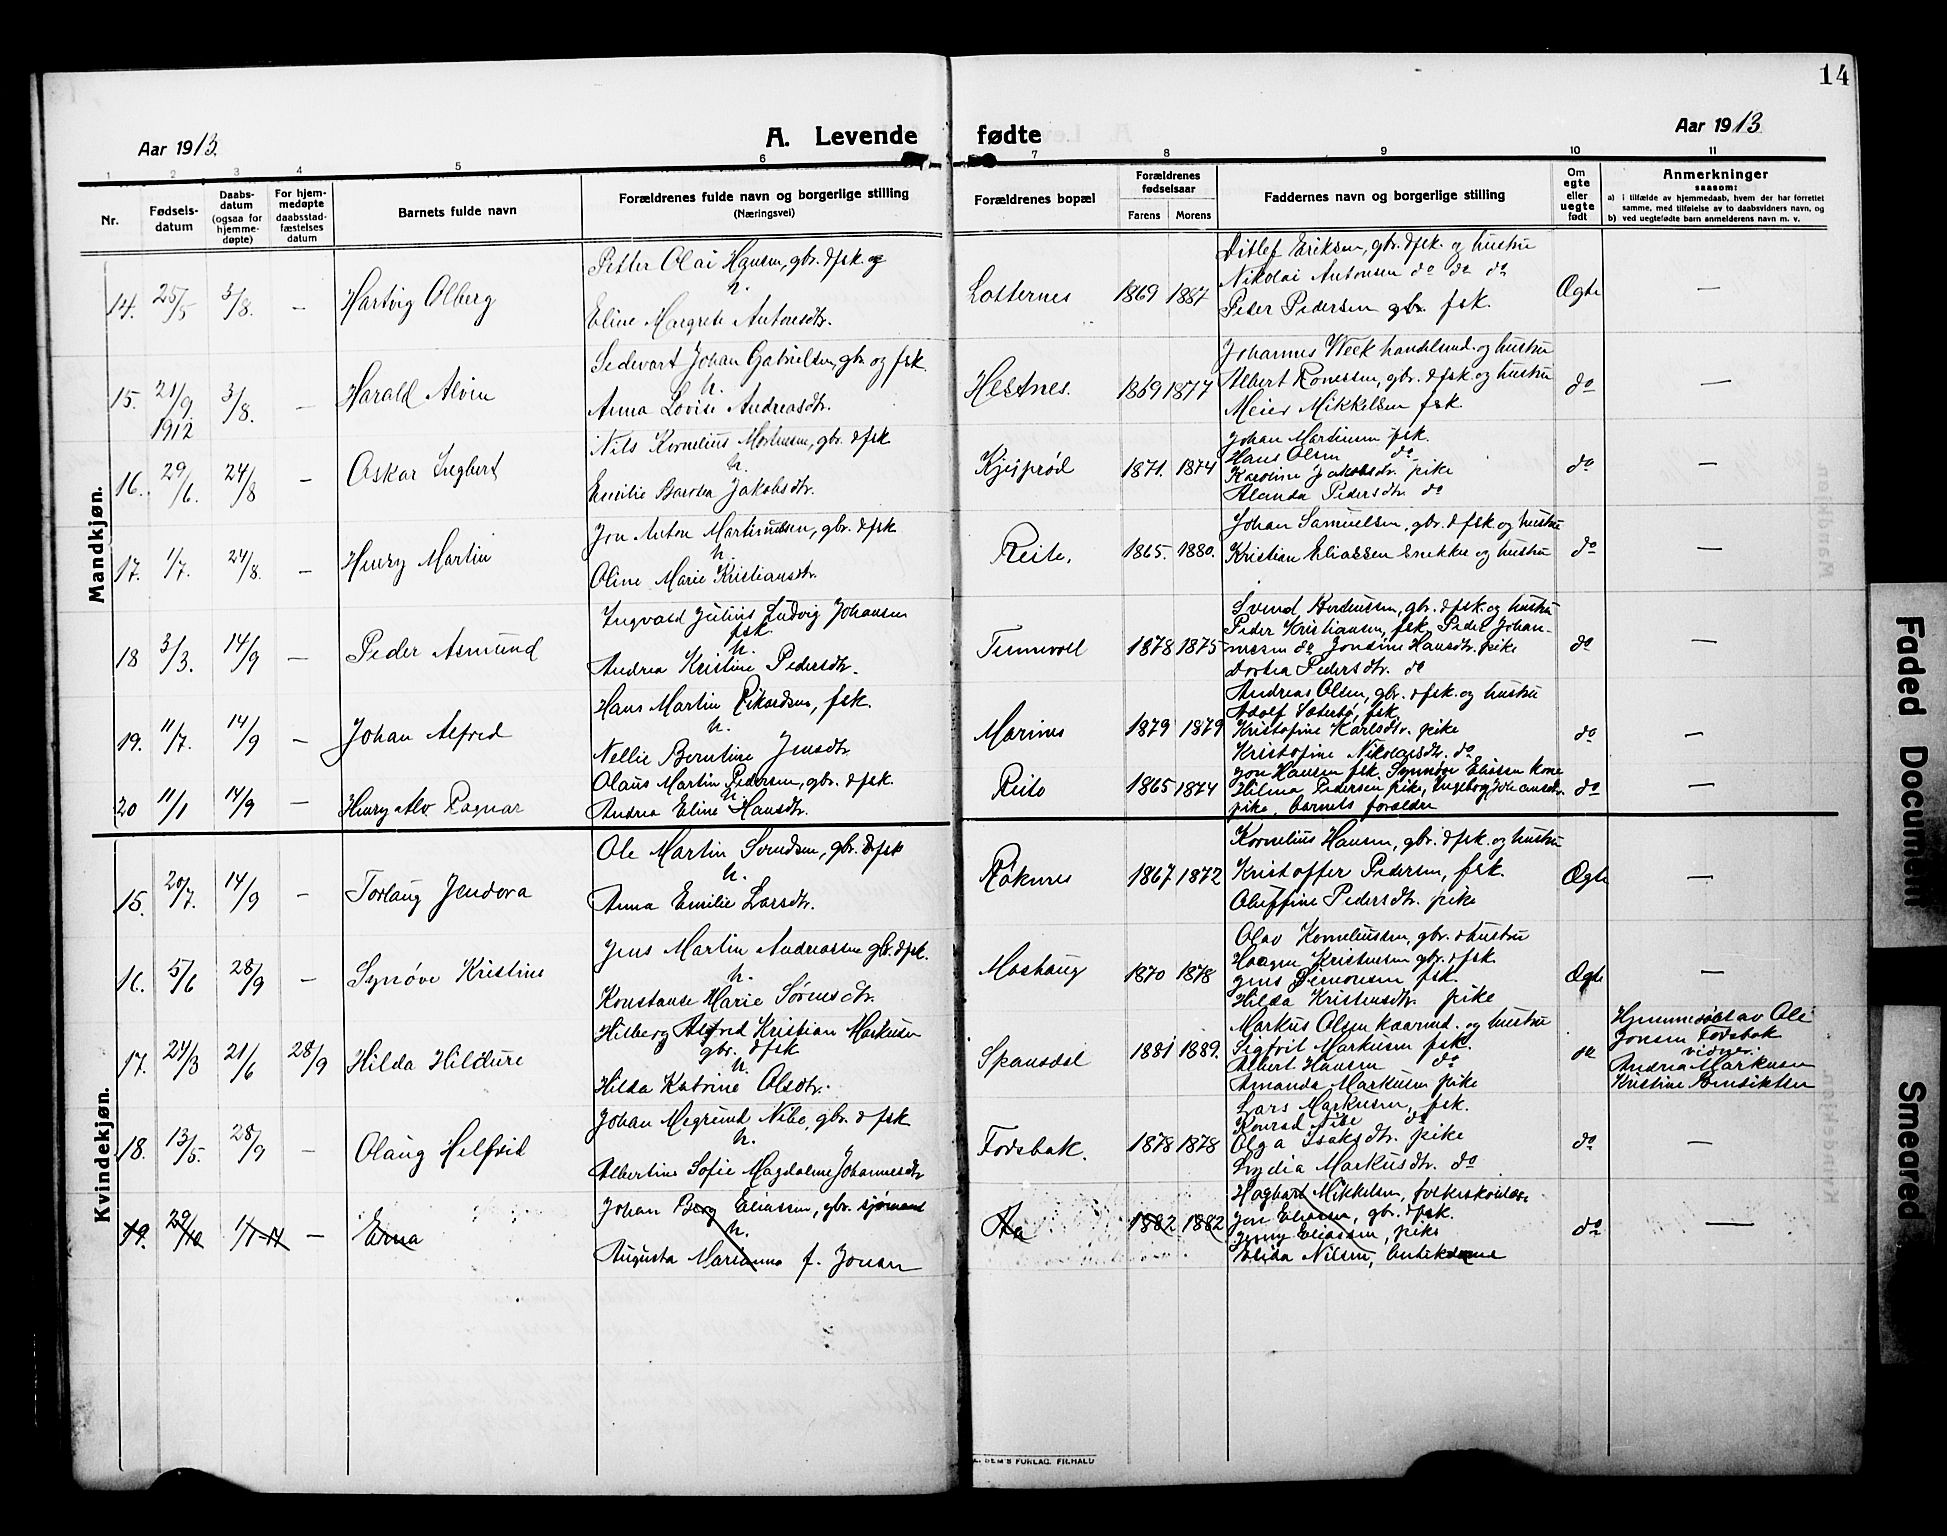 14
Aar 1913.
A. Levende fødte
Aar 1913
1 2 3 4 5 6 7 8 9 10 11
Nr.
Fødsels-datum
Daabs-datum (ogsaa for hjemme-døpte)
For hjem-medøpte daabsstad-fæstelses datum
Barnets fulde navn
Forældrenes fulde navn og borgerlige stilling
(Næringsvei)
Forældrenes bopæl
Forældrenes fødselsaar
Farens
Morens
Faddernes navn og borgerlige stilling
Om egte eller uegte født
Anmerkninger
saasom:
a) i tilfælde av hjemmedaab, hvem der har forrettet samme, med tilføielse av to daabsvidners navn, og
b) ved uegtefødte barn anmelderens navn m. v.
Mandkjøn.
14. 25/5 3/8. — Hartvig Olberg
Petter Olai Hansen, gbr. & fsk. og
h.
Eline Margrete Antonsdtr.
Lotternes 1869 1887
Ditlef Eriksen, gbr. & fsk. og hustru
Nikolai Antonsen do do do
Peder Pedersen gbr. fsk.
Ægte —
15. 21/9. 1912 3/8. — Harald Alvin
Sedevart Johan Gabrielsen, gbr. og fsk.
h.
Anna Lovise Andreasdtr.
Hestnes. 1869 1877
Johannes Week handelsmd. og hustru
Albert Ronessen, gbr. & fsk. og hustru
Meier Mikkelsen fsk.
do —
16. 29/6. 24/8 — Oskar Ingbert
Nils Kornelius Mortensen, gbr. & fsk
h.
Emilie Bardea Jakobsdtr.
1871. 1874
Johan Martinsen fsk.
Hans Olsen do
Karoline Jakobsdtr. pike
Alanda Pedersdtr. do
do —
17. 1/7. 24/8. — Henry Martin
Jon Anton Martinussen, gbr. & fsk
h.
Oline Marie Kristiansdtr.
Reite. 1865. 1880.
Johan Samuelsen, gbr. & fsk og hustru
Kristian Eliassen snekker og hustru
do —
18 3/3. 14/9 — Peder Asmund
Ingvald Julius Ludvig Johansen
fsk.
h.
Andrea Kristine Pedersdtr.
Tennevoll 1878 1875
Svend Berteussen, gbr. & fsk. og hustru
Peder Kristiansen, fsk. Peder Johan-
nesen do Jonsine Hansdtr. pike
Dortea Pedersdtr. do
do —
19. 11/7. 14/9 — Johan Alfred
Hans Martin Rikardsen, fsk.
h.
Nellie Berntine Jensdtr
Marines 1879 1879
Andreas Olsen, gbr. & fsk. og hustru
Adolf Sæterbø, fsk.
Kristofine Karlsdtr. pike
Kristofine Nikolaisdtr. do
do —
20 11/1 14/9 — Henry Alv Ragnar
Olaus Martin Pedersen, gbr. & fsk.
h.
Andrea Eline Hansdtr.
Reito 1865 1874
Jon Hansen fsk. Synnøve Eliesen kone
Hilma Pedersen pike, Ingeborg Johansdtr.
pike, barnets forældre
do —
Kvindekjøn.
15. 20/7. 14/9 — Torlaug Jendora
Ole Martin Svendsen, gbr. & fsk
h.
Anna Emilie Larsdtr.
Røknes 1867 1872
Kornelius Hansen, gbr. & fsk. og hustru
Kristoffer Pedersen, fsk.
Oluffine Pedersdtr. pike
Ægte —
16. 5/6 28/9 — Synøve Kristine
Jens Martin Andreassen gbr. & fsk.
h.
Konstanse Marie Sørensdtr.
Moshaug 1870 1878
Olav Korneliussen, gbr. & hustru
Haagen Kristensen gbr. & fsk.
Jens Simonsen fsk.
Hilda Kristensdtr. pike
Ægte —
17. 24/3 21/6 28/9 Hilda Hildure
Hilberg Alfred Kristian Markusen
gbr. & fsk
h.
Hilda Katrine Olsdtr.
Spansdal 1881 1889.
Markus Olsen kaarmd. og hustru
Sigfrit Markusen fsk.
Albert Hansen do
Amanda Markusen pike
do
Hjemmedøbt av Ole
Jonsen Fodsbak
vidner:
Andrea Markusen
Kristine Bendiktsen
18. 13/5. 28/9 — Olaug Helfrid
Johan Megrund Nibe, gbr. & fsk
h.
Albertine Sofie Magdalene Johannesdtr
Fodsbak. 1878 1878
Lars Markusen, fsk.
Konrad Nibe do
Olga Isaksdtr. pike
Lydia Markusdtr. do
do —
19. 29/10 1/1-14 — Erna
Johan Berg Eliassen, gbr. sjømand
h.
Augusta Marianna f. Jonsen
Aa 1882 1882
Hagbart Mikkelsen, folkeskolelærer
Jon Eliassen, gbr. & fsk.
Jenny Eliassen, pike
Elida Nilsen, butikdame
do —
FORLAG. FR.HALD
Faded Document
Smeared